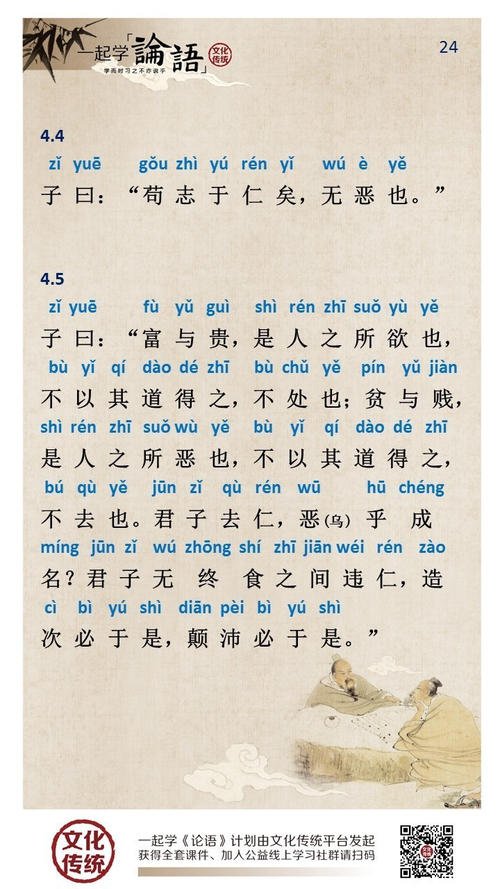 一起学「論語」文化传统
24
学而时习之不亦说乎
4.4
zǐ yuē gǒu zhì yú rén yǐ wú è yě
子曰：“苟志于仁矣，无恶也。”
4.5
zǐ yuē fù yǔ guì shì rén zhī suǒ yù yě
子曰：“富与贵，是人之所欲也，
bù yǐ qí dào dé zhī bù chǔ yě pín yǔ jiàn
不以其道得之，不处也；贫与贱，
shì rén zhī suǒ wù yě bù yǐ qí dào dé zhī
是人之所恶也，不以其道得之，
bú qù yě jūn zǐ qù rén wū hū chéng
不去也。君子去仁，恶(乌)乎成
míng jūn zǐ wú zhōng shí zhī jiān wéi rén zào
名？君子无终食之间违仁，造
cì bì yú shì diān pèi bì yú shì
次必于是，颠沛必于是。”
文化传统
一起学《论语》计划由文化传统平台发起
获得全套课件、加人公益线上学习社群请扫码